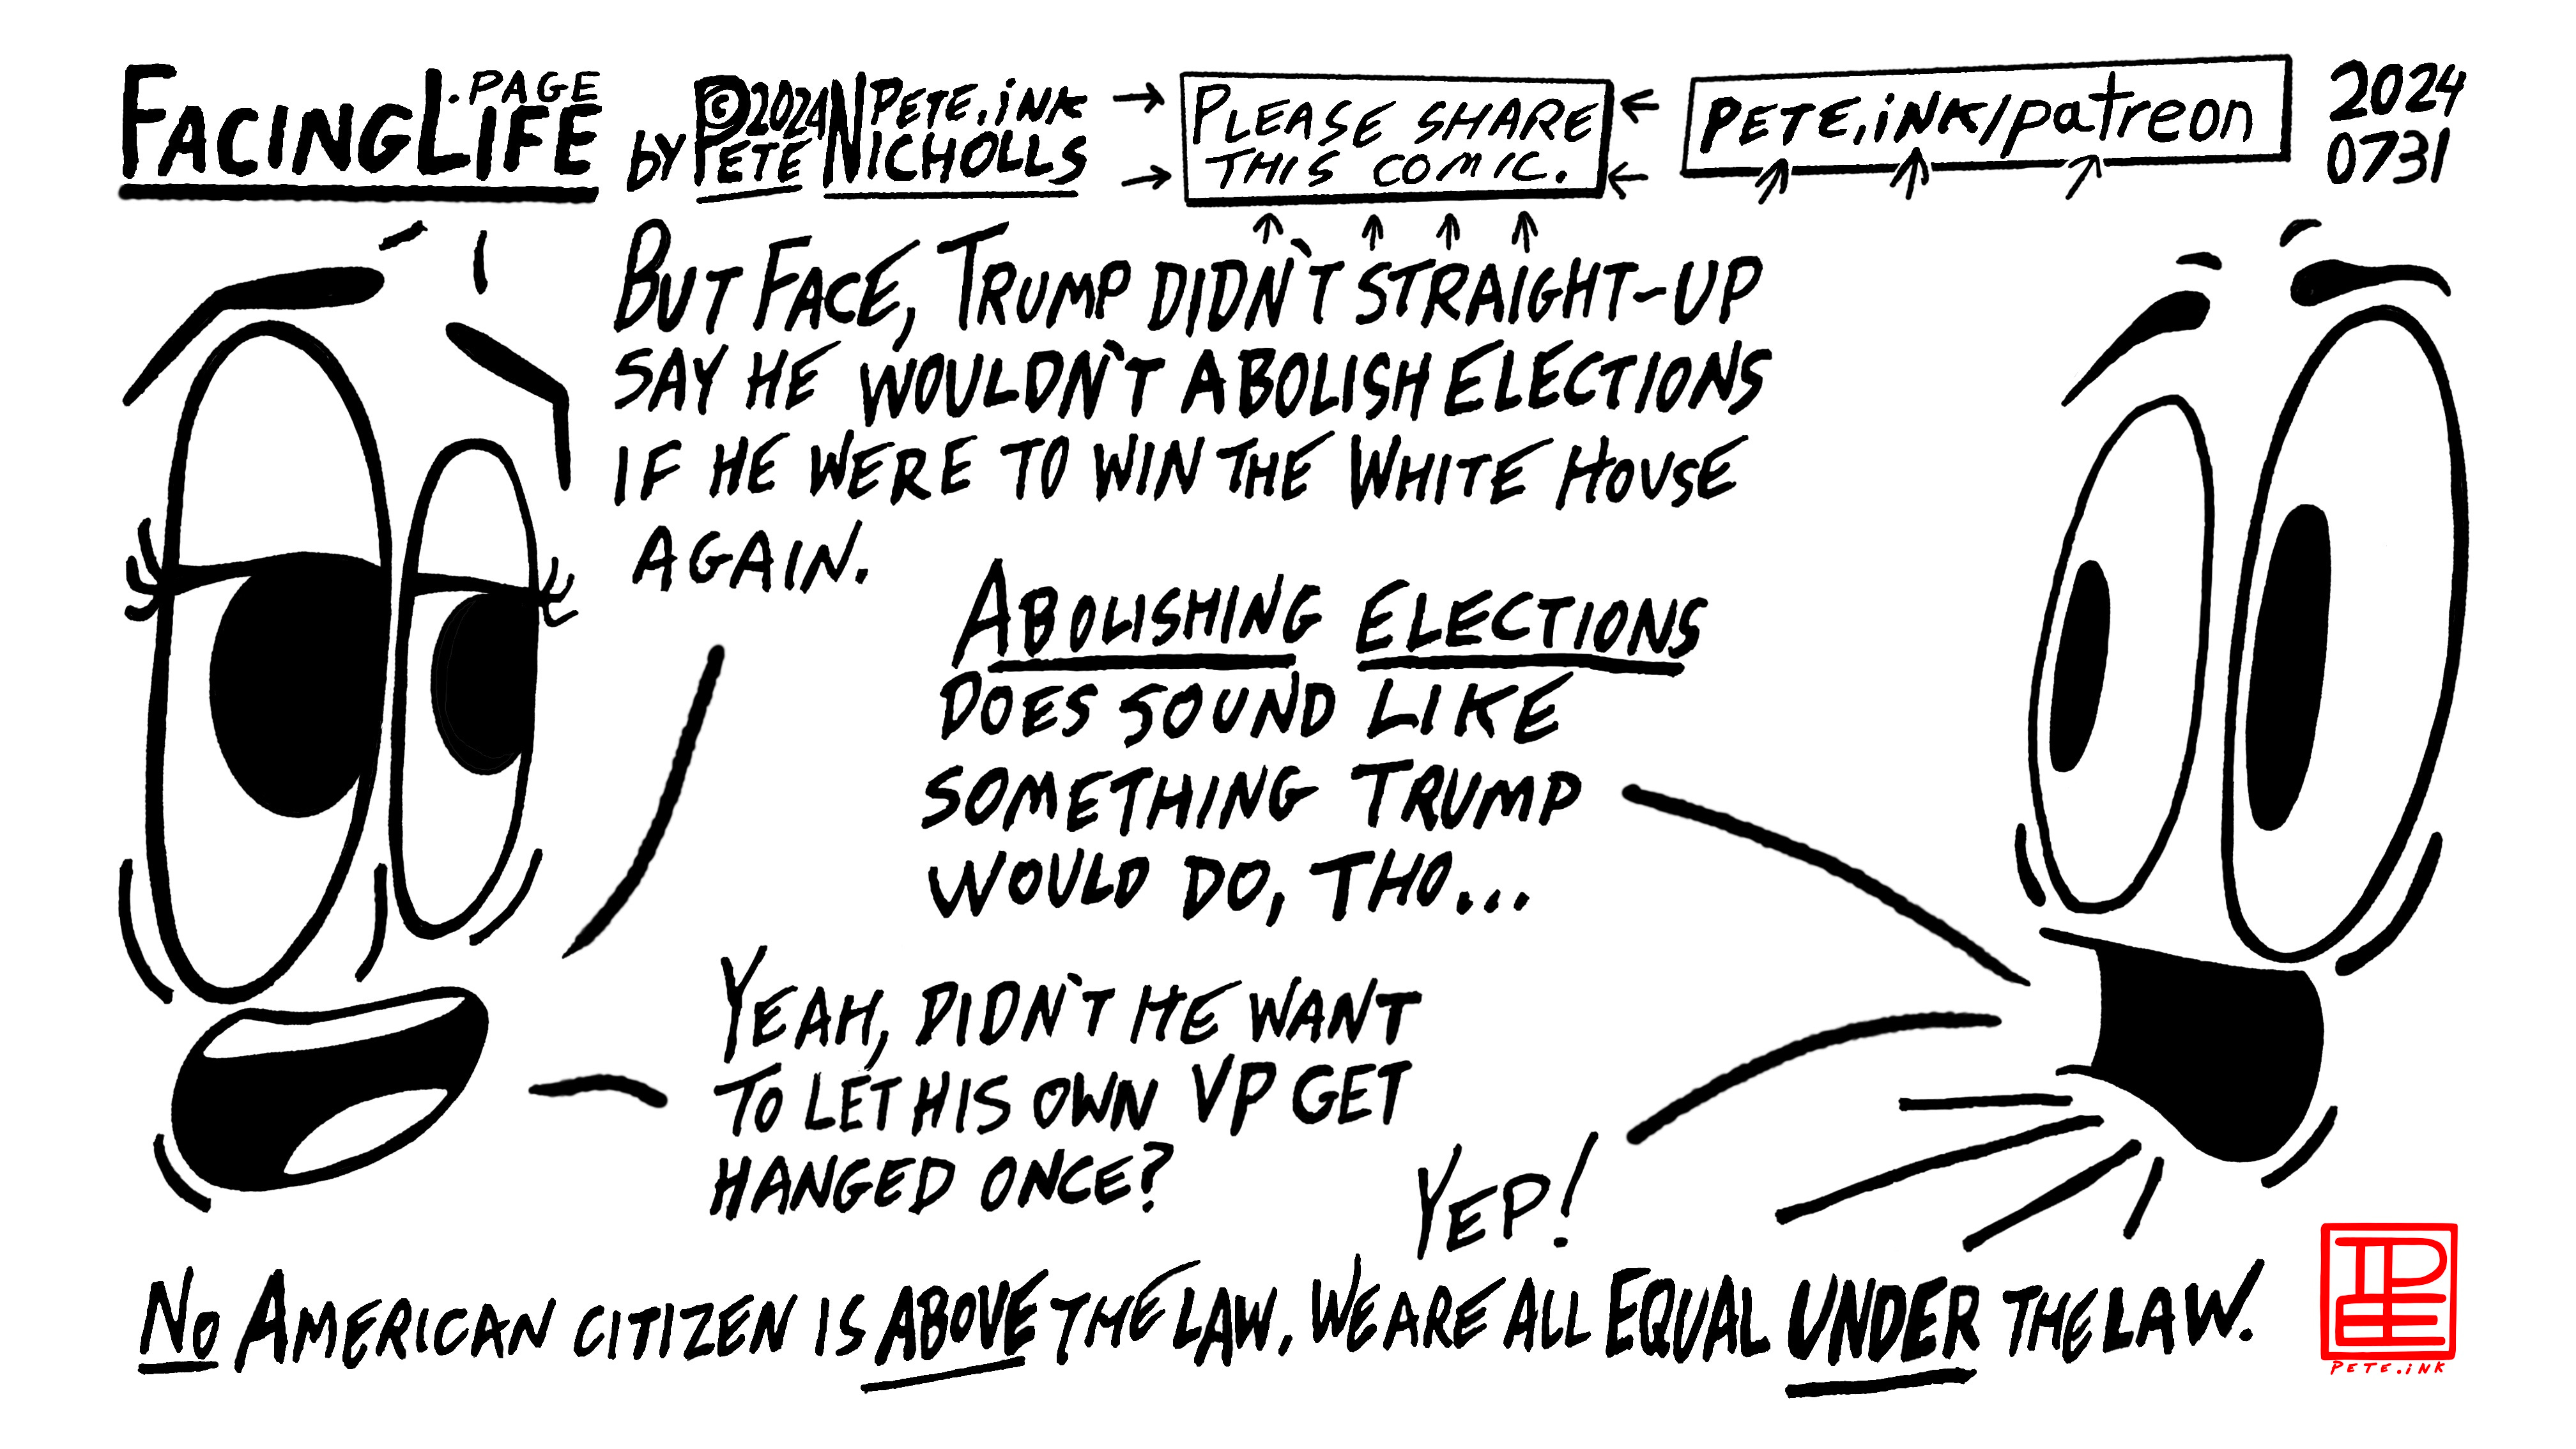 FACINGLIFE.PAGE
BY PETE NICHOLLS
©2024 PETE.iNK
→ PLEASE SHARE ←
→ THIS COMIC. ←
PETE.iNK/patreon
2024
0731
BUT FACE, TRUMP DIDN'T STRAIGHT-UP
SAY HE WOULDN'T ABOLISH ELECTIONS
IF HE WERE TO WIN THE WHITE HOUSE
AGAIN.
ABOLISHING ELECTIONS
DOES SOUND LIKE
SOMETHING TRUMP
WOULD DO, THO...
YEAH, DIDN'T HE WANT
TO LET HIS OWN VP GET
HANGED ONCE?
YEP!
NO AMERICAN CITIZEN IS ABOVE THE LAW. WE ARE ALL EQUAL UNDER THE LAW.
PETE.iNK